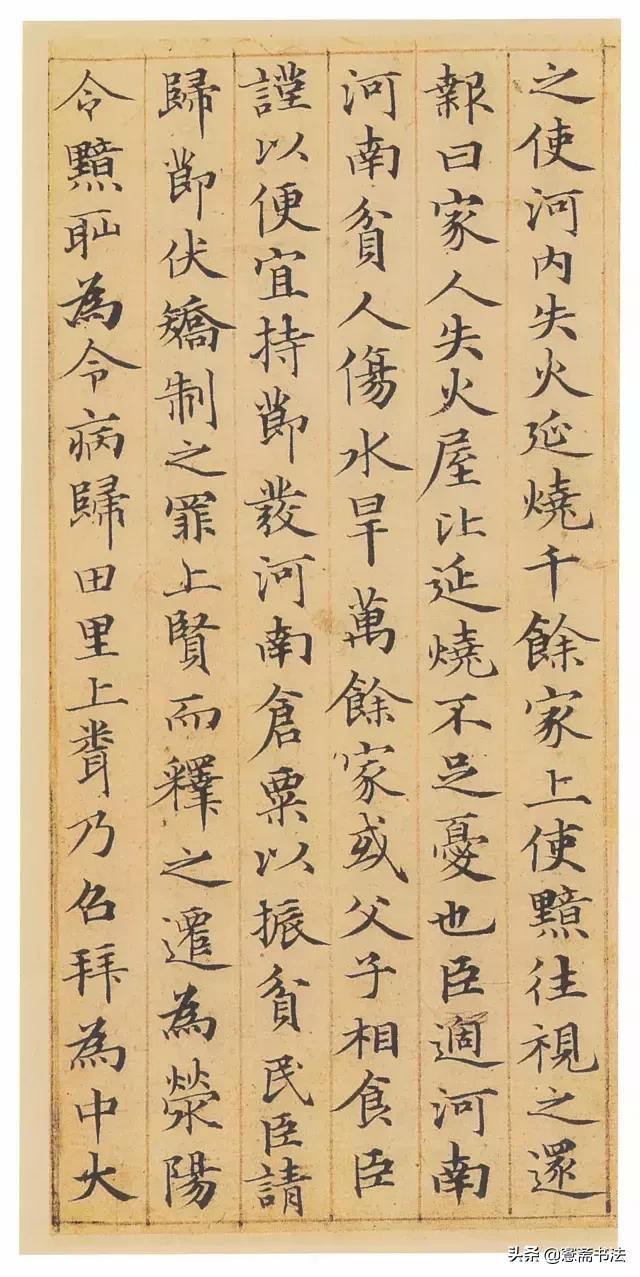 之使河内失火延燒千餘家上使黯往視之還
報曰家人失火屋比延燒不足憂也臣過河南
河南貧人傷水旱萬餘家或父子相食臣
謹以便宜持節發河南倉粟以振貧民臣請
歸節伏矯制之罪上賢而釋之遷為滎陽
令黯耻為令病歸田里上聞乃召拜為中大
头条 @愙斋书法